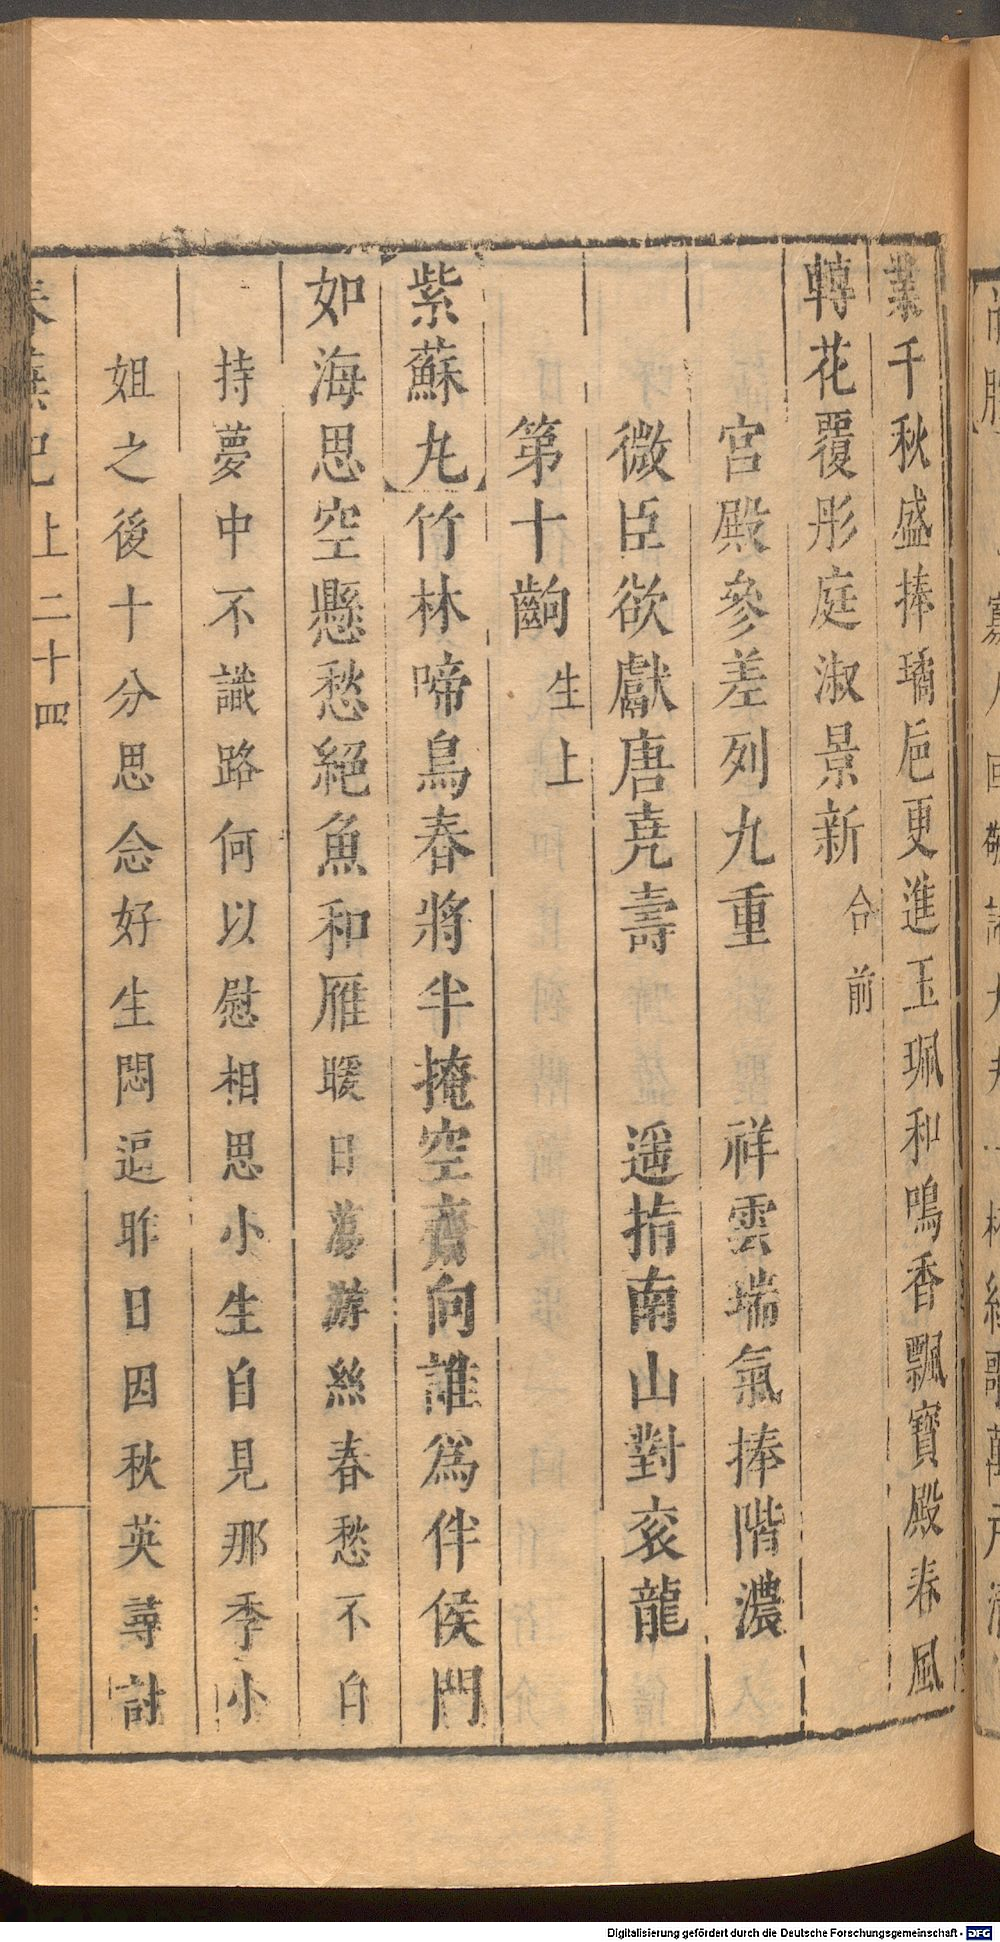 業千秋盛捧璚卮更進玉珮和鳴香飄寳殿春風
轉花覆彤庭淑景新合前
宮殿參差列九重 祥雲瑞氣捧階濃
微臣欲獻唐堯壽 遥指南山對衮龍
第十齣 生上
【紫蘇丸】竹林啼鳥春將半掩空齋向誰爲伴侯門
如海思空懸愁絕魚和雁暖日蕩游絲春愁不自
持夢中不識路何以慰相思小生自見那季小
姐之後十分思念好生悶逼昨日因秋英尋討
春蕪記 上 二十四
Digitalisierung gefördert durch die Deutsche Forschungsgemeinschaft - DFG